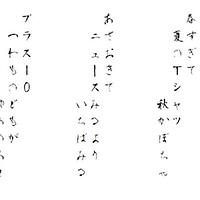 春すぎて
夏のTシャツ
秋かぼちゃ
あさおきて
ニュースみるより
いちばみる
プラス10
つわものどもが